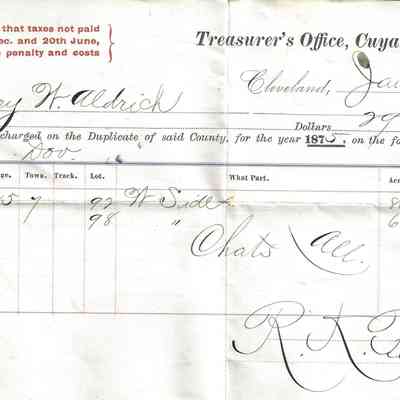 that taxes not paid
ec. and 20th June,
penalty and costs
Treasurer's Office, Cuya
Cleveland, Jan
ey W. Aldrich
Dollars 29
charged on the Duplicate of said County, for the year 1875, on the fo
Dov.
ge. Town. Track. Lot. What Part. Acr
5 7 92 W Side 8
98 " 6
Chats All
R. K.